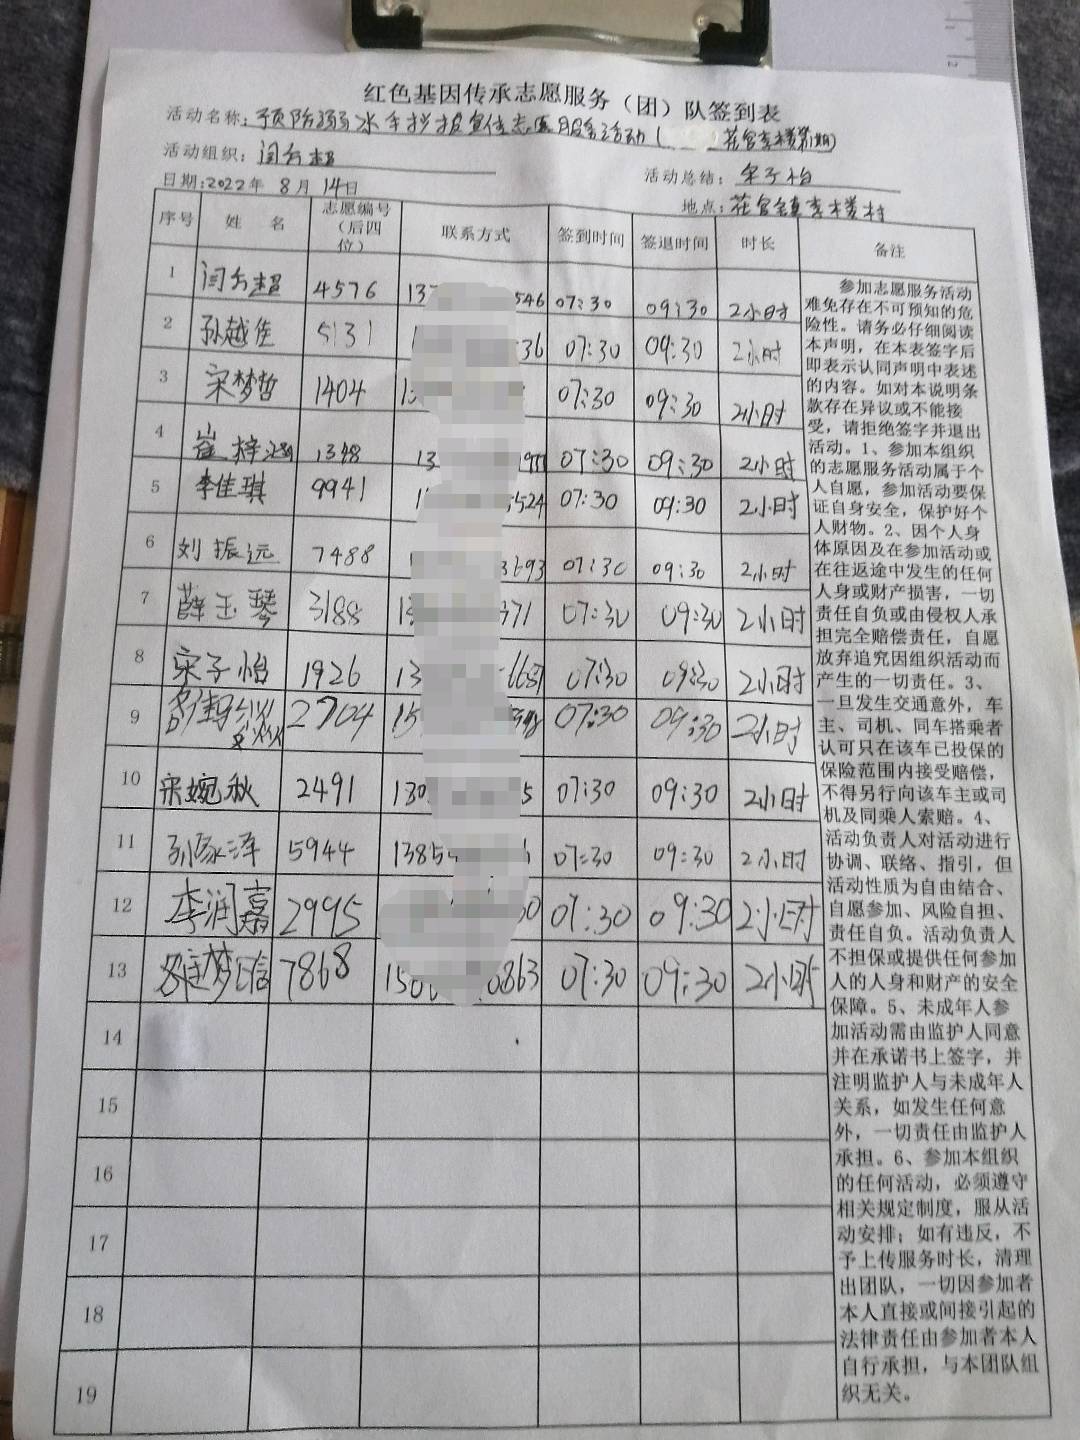 红色基因传承志愿服务（团）队签到表
活动名称：预防溺水手抄报宣传志愿服务活动（
活动组织：闫云超
活动总结：宋子怡
日期：2022年 8月 14日
地点：花官镇李楼村
序号 姓 名 志愿编号（后四位） 联系方式 签到时间 签退时间 时长 备注
1 闫云超 4576 13 546 07:30 09:30 2小时
2 孙越佳 5131 1 536 07:30 09:30 2小时
3 宋梦哲 1404 13 07:30 09:30 2小时
4 崔梓涵 1348 13 07:30 09:30 2小时
5 李佳琪 9941 1 524 07:30 09:30 2小时
6 刘振远 7488 3693 07:30 09:30 2小时
7 薛玉琴 3188 13 371 07:30 09:30 2小时
8 宋子怡 1926 13 07:30 09:30 2小时
9 2704 15 07:30 09:30 2小时
10 宋婉秋 2491 130 5 07:30 09:30 2小时
11 孙家泽 5944 1385 07:30 09:30 2小时
12 李润嘉 2995 0 07:30 09:30 2小时
13 7868 150 0863 07:30 09:30 2小时
14
15
16
17
18
19
参加志愿服务活动
难免存在不可预知的危
险性。请务必仔细阅读
本声明，在本表签字后
即表示认同声明中表述
的内容。如对本说明条
款存在异议或不能接
受，请拒绝签字并退出
活动。1、参加本组织
的志愿服务活动属于个
人自愿，参加活动要保
证自身安全，保护好个
人财物。2、因个人身
体原因及在参加活动或
在往返途中发生的任何
人身或财产损害，一切
责任自负或由侵权人承
担完全赔偿责任，自愿
放弃追究因组织活动而
产生的一切责任。3、
一旦发生交通意外，车
主、司机、同车搭乘者
认可只在该车已投保的
保险范围内接受赔偿，
不得另行向该车主或司
机及同乘人索赔。4、
活动负责人对活动进行
协调、联络、指引，但
活动性质为自由结合、
自愿参加、风险自担、
责任自负。活动负责人
不担保或提供任何参加
人的人身和财产的安全
保障。5、未成年人参
加活动需由监护人同意
并在承诺书上签字，并
注明监护人与未成年人
关系，如发生任何意
外，一切责任由监护人
承担。6、参加本组织
的任何活动，必须遵守
相关规定制度，服从活
动安排；如有违反，不
予上传服务时长，清理
出团队，一切因参加者
本人直接或间接引起的
法律责任由参加者本人
自行承担，与本团队组
织无关。